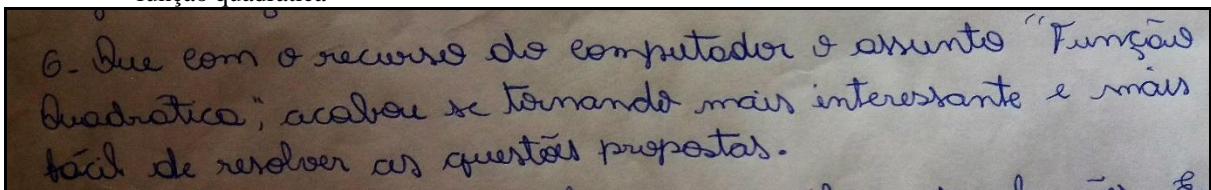 função quadrática
6- Que com o recurso do computador o assunto "Função
Quadratica", acabou se tornando mais interessante e mais
fácil de resolver as questões propostas.